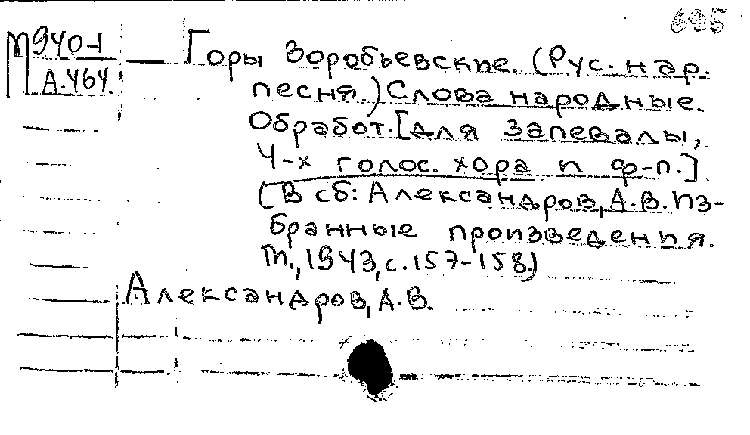 695
М 940-1
А.464.
Горы Воробьевские. (Рус. нар.
песня.) Слова народные.
Обработ. [для запевалы,
4-х голос. хора и ф-п.]
(В сб: Александров, А.В. Из-
бранные произведения.
М., 1943, с. 157-158.)
Александров, А.В.